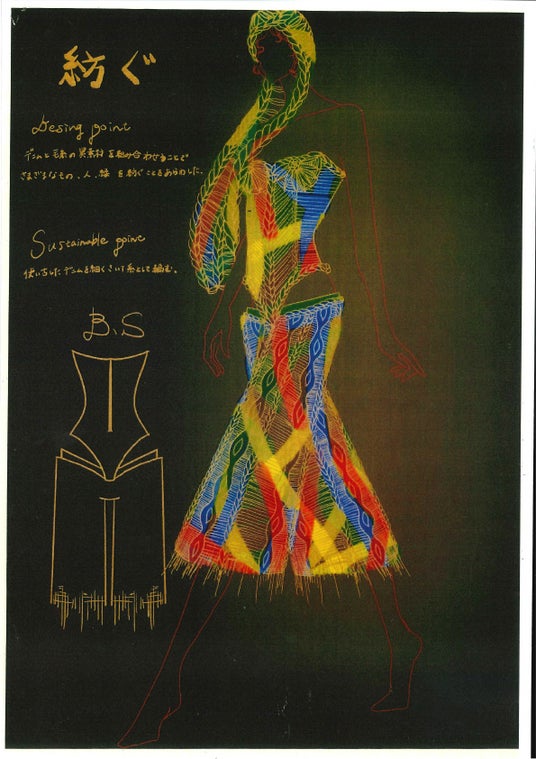 紡ぐ
Desing point
デニムと毛糸の異素材を組み合わせることで
さまざまなもの、人、縁を紡ぐことをあらわした。
Sustainable point
使い古したデニムを細くさいて糸として編む。
B.S